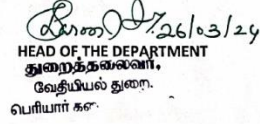 26/03/24
HEAD OF THE DEPARTMENT
துறைத்தலைவர்,
வேதியியல் துறை.
பெரியார்